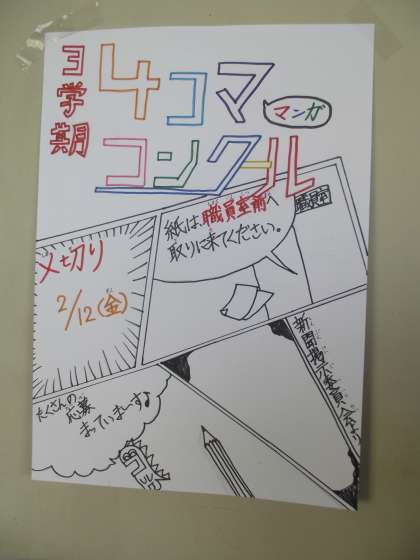 3学期
4コマ
マンガ
コンクール
紙は、職員室前へ
取りに来てください。
職員室
〆切り
2/12(金)
たくさんの
応募
まっていまーす♪
新聞掲示委員会より